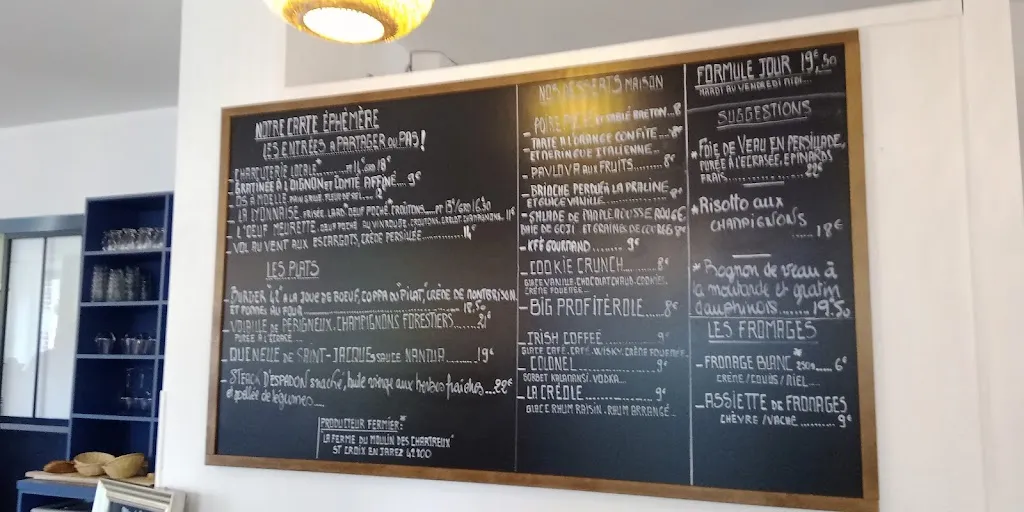 NOTRE CARTE ÉPHÉMÈRE
LES ENTRÉES A PARTAGER OU PAS!
- CHARCUTERIE LOCALE* 14€ 18€
- GRATINÉE A L'OIGNON ET COMTÉ AFFINÉ.... 9€
- OS A MOELLE
- LA LYONNAISE FRISÉE LARD OEUF POCHÉ CROÛTONS
- L'OEUF MEURETTE OEUF POCHÉ AU VIN ROUGE CROUTONS, 11€
- VOL AU VENT AUX ESCARGOTS, CRÈME PERSILLÉE 14€
LES PLATS
- BURGER "42" A LA JOUE DE BOEUF, COPPA DU "PILAT", CRÈME DE MONTBRISON,
ET POMMES AU FOUR 18.50
- VOLAILLE DE PÉRIGNEUX, CHAMPIGNONS FORESTIERS 21€
PURÉE A L'ÉCRASÉ
- QUENELLE DE SAINT-JACQUES SAUCE NANTUA 19€
- STEACK D'ESPADON snacké, huile vierge aux herbes fraîches... 22€
et poêlée de légumes
PRODUCTEUR FERMIER:*
LA FERME DU MOULIN DES CHARTREUX"
ST CROIX EN JAREZ 42800
NOS DESSERTS MAISON
- SABLÉ BRETON... 8
- TARTE A L'ORANGE CONFITE... 8€
ET MERINGUE ITALIENNE
- PAVLOVA AUX FRUITS 8€
- BRIOCHE PERDUE A LA PRALINE 8€
ET GLACE VANILLE
- SALADE DE POMELOS ROUGE
BAIE DE GOJI, ET GRAINES DE COURGES 8€
- KFÉ GOURMAND 9€
- COOKIE CRUNCH 8€
GLACE VANILLE, CHOCOLAT CHAUD, COOKIES,
CRÈME FOUETTÉE
- BIG PROFITÉROLE 8€
- IRISH COFFEE 9€
GLACE CAFÉ, CAFÉ, WISKY, CRÈME FOUETTÉE
- COLONEL 9€
SORBET KALAMANSI, VODKA
- LA CRÉOLE 9€
GLACE RHUM RAISIN, RHUM ARRANGÉ
FORMULE JOUR 19€,50
MARDI AU VENDREDI MIDI
SUGGESTIONS
* FOIE DE VEAU EN PERSILLADE,
PURÉE A L'ECRASÉE, EPINARDS
FRAIS 22€
* RISOTTO AUX
CHAMPIGNONS
18€
* Rognon de veau à
la moutarde et gratin
dauphinois 19.50
LES FROMAGES
- FROMAGE BLANC* 250g 6€
CRÈME / COULIS / MIEL
- ASSIETTE DE FROMAGES
CHÈVRE / VACHE 9€